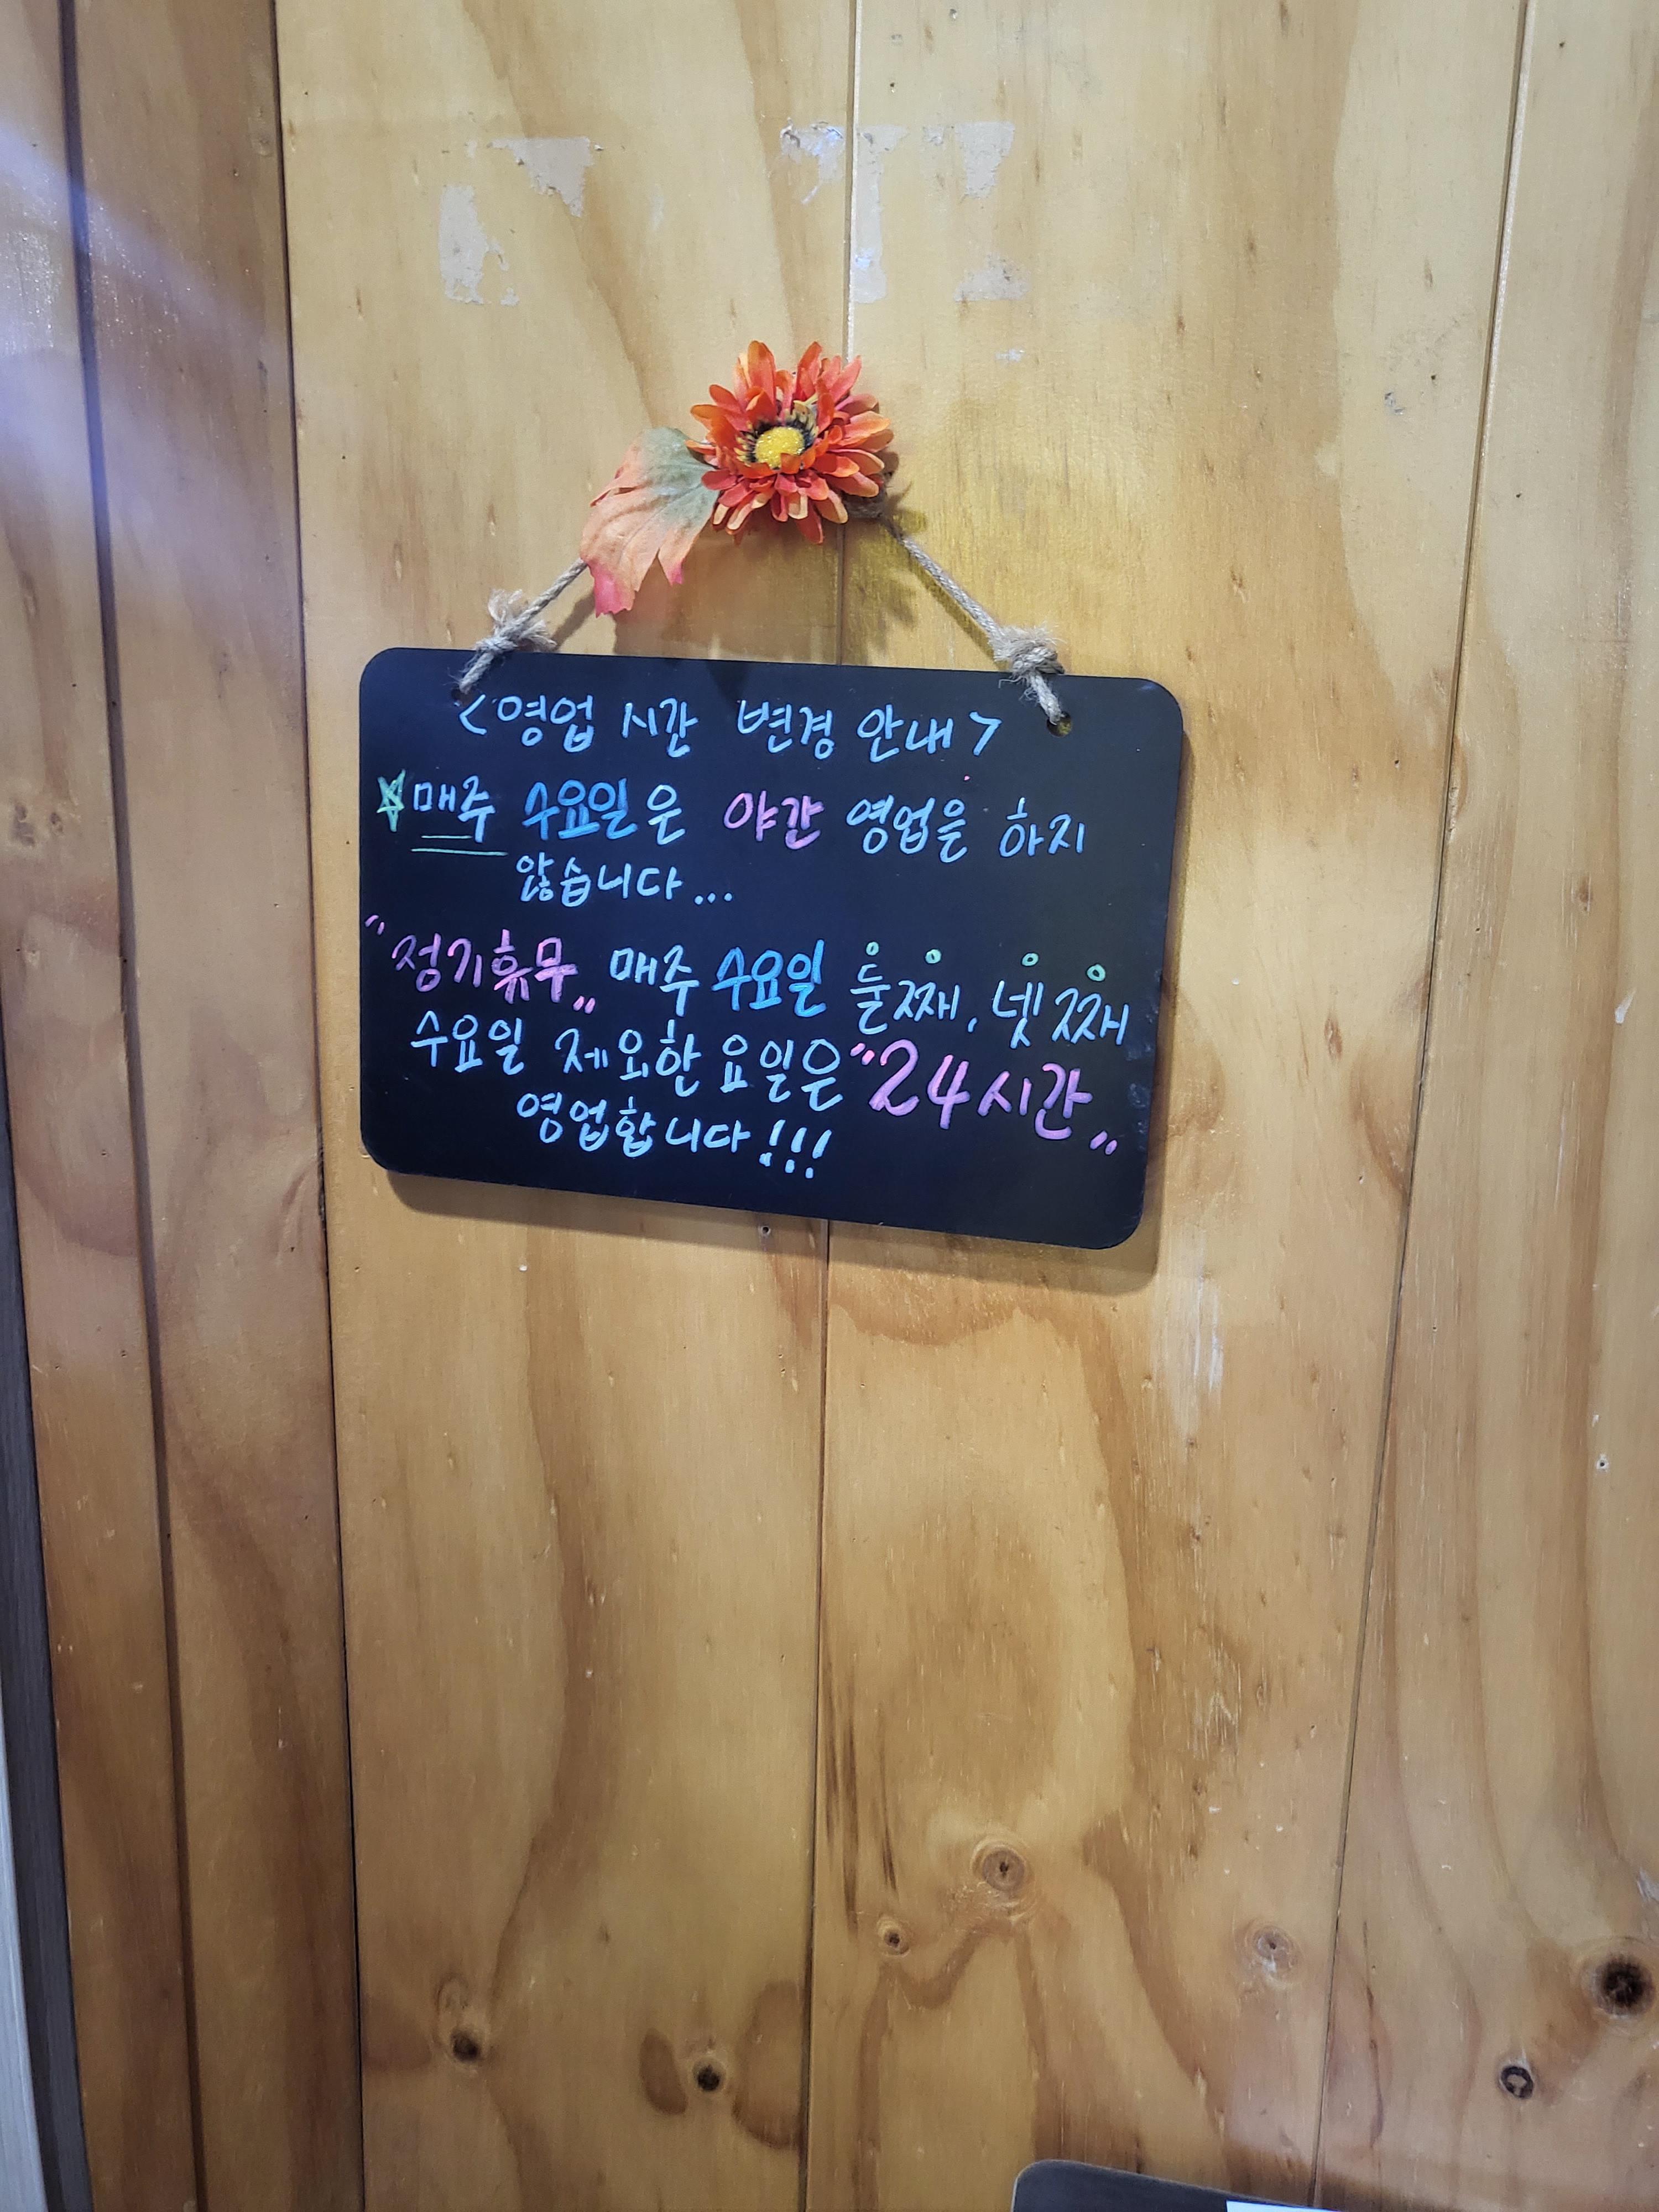 <영업 시간 변경 안내>
☆매주 수요일은 야간 영업을 하지
않습니다...
"정기휴무" 매주 수요일 둘째, 넷째
수요일 제외한 요일은 "24시간"
영업합니다!!!